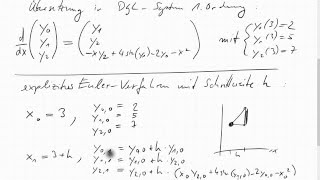 Übersetzung in Dgl-System 1. Ordnung:
d/dx (y₀ y₁ y₂) = (y₁ y₂ -xy₂+4sin(y₁)-2y₀-x²) mit { y₀(3) = 2
y₁(3) = 5
y₂(3) = 7
explizites Euler-Verfahren mit Schrittweite h:
x₀ = 3, y₀,₀ = 2
y₁,₀ = 5
y₂,₀ = 7
x₁ = 3+h, y₀,₁ = y₀,₀ + h · y₁,₀
y₁,₁ = y₁,₀ + h · y₂,₀
y₂,₁ = y₂,₀ + h ·